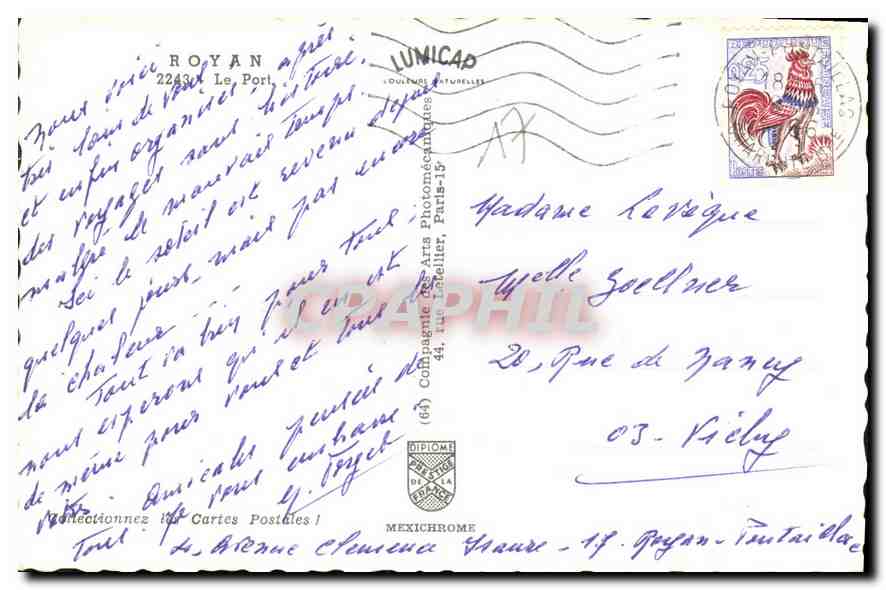 ROYAN
2243 - Le Port
LUMICAP
COULEURS NATURELLES
17
Nous voici
très loin de vous après
et enfin organisés,
des voyages sans histoire,
malgré le mauvais temps.
Ici le soleil est revenu depuis
quelques jours, mais pas encore
la chaleur ...
Tout va bien pour tous ;
nous espérons qu'il en est
de même pour vous et tous les
vôtres. Amicales pensées de
tous. Je vous embrasse
Madame Levêque
Melle Zoellner
20, Rue de Nancy
03 - Vichy
(64) Compagnie des Arts Photomécaniques
44, rue Letellier, Paris-15e
CPAPHIL
DIPLOME
PRESTIGE
DE LA
FRANCE
MEXICHROME
Collectionnez les Cartes Postales !
Avenue Clémence Isaure - 17. Royan - Pontaillac